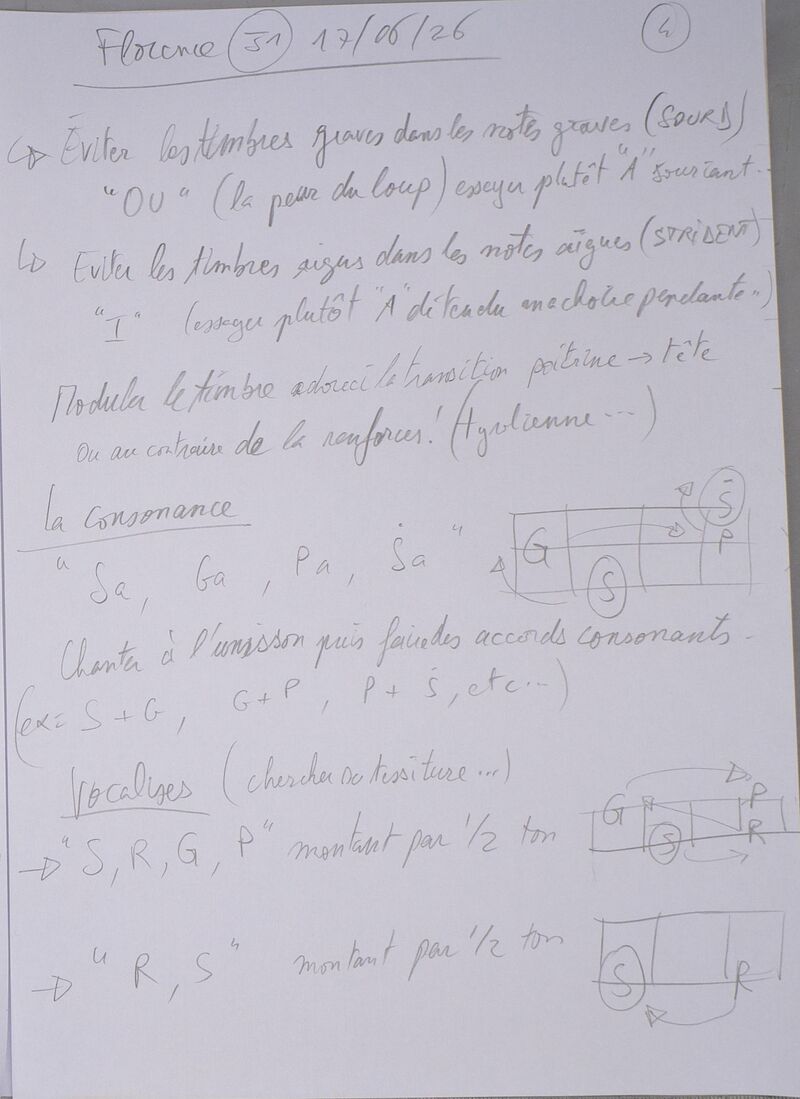 Florence J1 17/06/26
4
↳ Éviter les timbres graves dans les notes graves (SOURD)
"OU" (la peur du loup) essayer plutôt "A" souriant..
↳ Eviter les timbres aigus dans les notes aïgues (STRIDENT)
"I" (essayer plutôt "A" détendu machoire pendante..)
Moduler le timbre adouci la transition poitrine → tête
Ou au contraire de la renforcer! (tyrolienne...)
la consonance
"Sa, Ga, Pa, Ṡa"
G S P Ṡ
Chanter à l'unisson puis faire des accords consonants.
(ex= S+G, G+P, P+Ṡ, etc...)
Vocalises (chercher sa tessiture...)
→ "S, R, G, P" montant par 1/2 ton
G S P R
→ "R, S" montant par 1/2 ton
S R